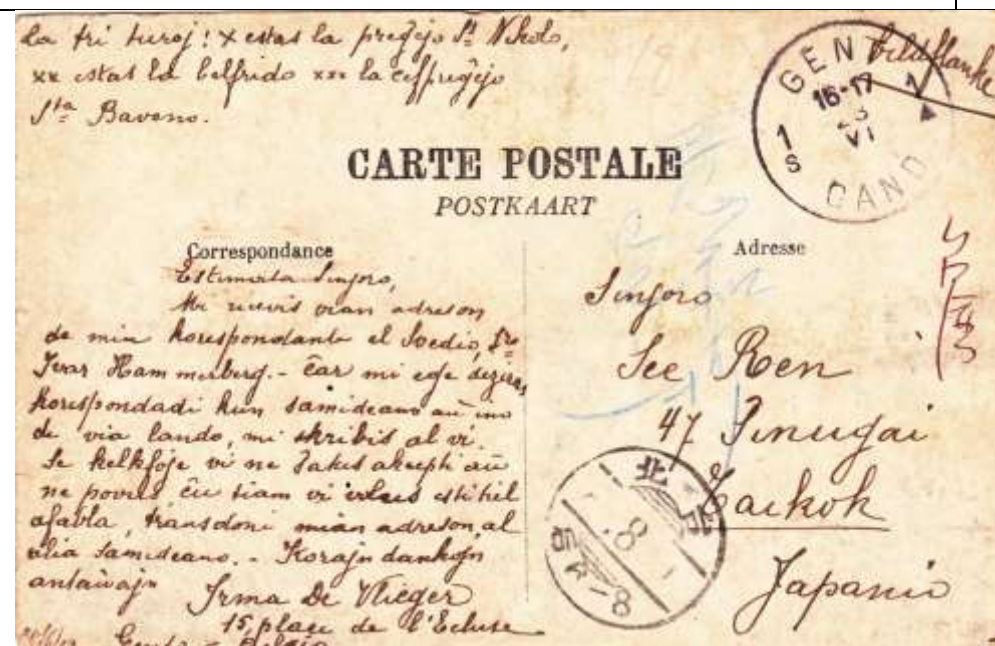 la tri turoj: x estas la preĝejo Sta Nikolo,
xx estas la belfrido xxx la ĉefpreĝejo
Sta Bavono.
bildflanke
GENT 1
16-17
23
VI
1
S
GAND
CARTE POSTALE
POSTKAART
Correspondance
Estimata Sinjoro,
Mi ricevis vian adreson
de mia korespondanto el Svedio, Sro
Hammerberg. - Ĉar mi ege deziras
korespondadi kun samideano aŭ ino
de via lando, mi skribis al vi.
Se kelkfoje vi ne akcepti aŭ
ne povus ĉu tiam vi volus esti tiel
afabla, transdoni mian adreson al
alia samideano. - Korajn dankojn
antaŭajn
Irma De Vlieger
15, place de l'Ecluse
Gento - Belgio
Adresse
Sinjoro
See Ren
47
Japanio
北
8
8